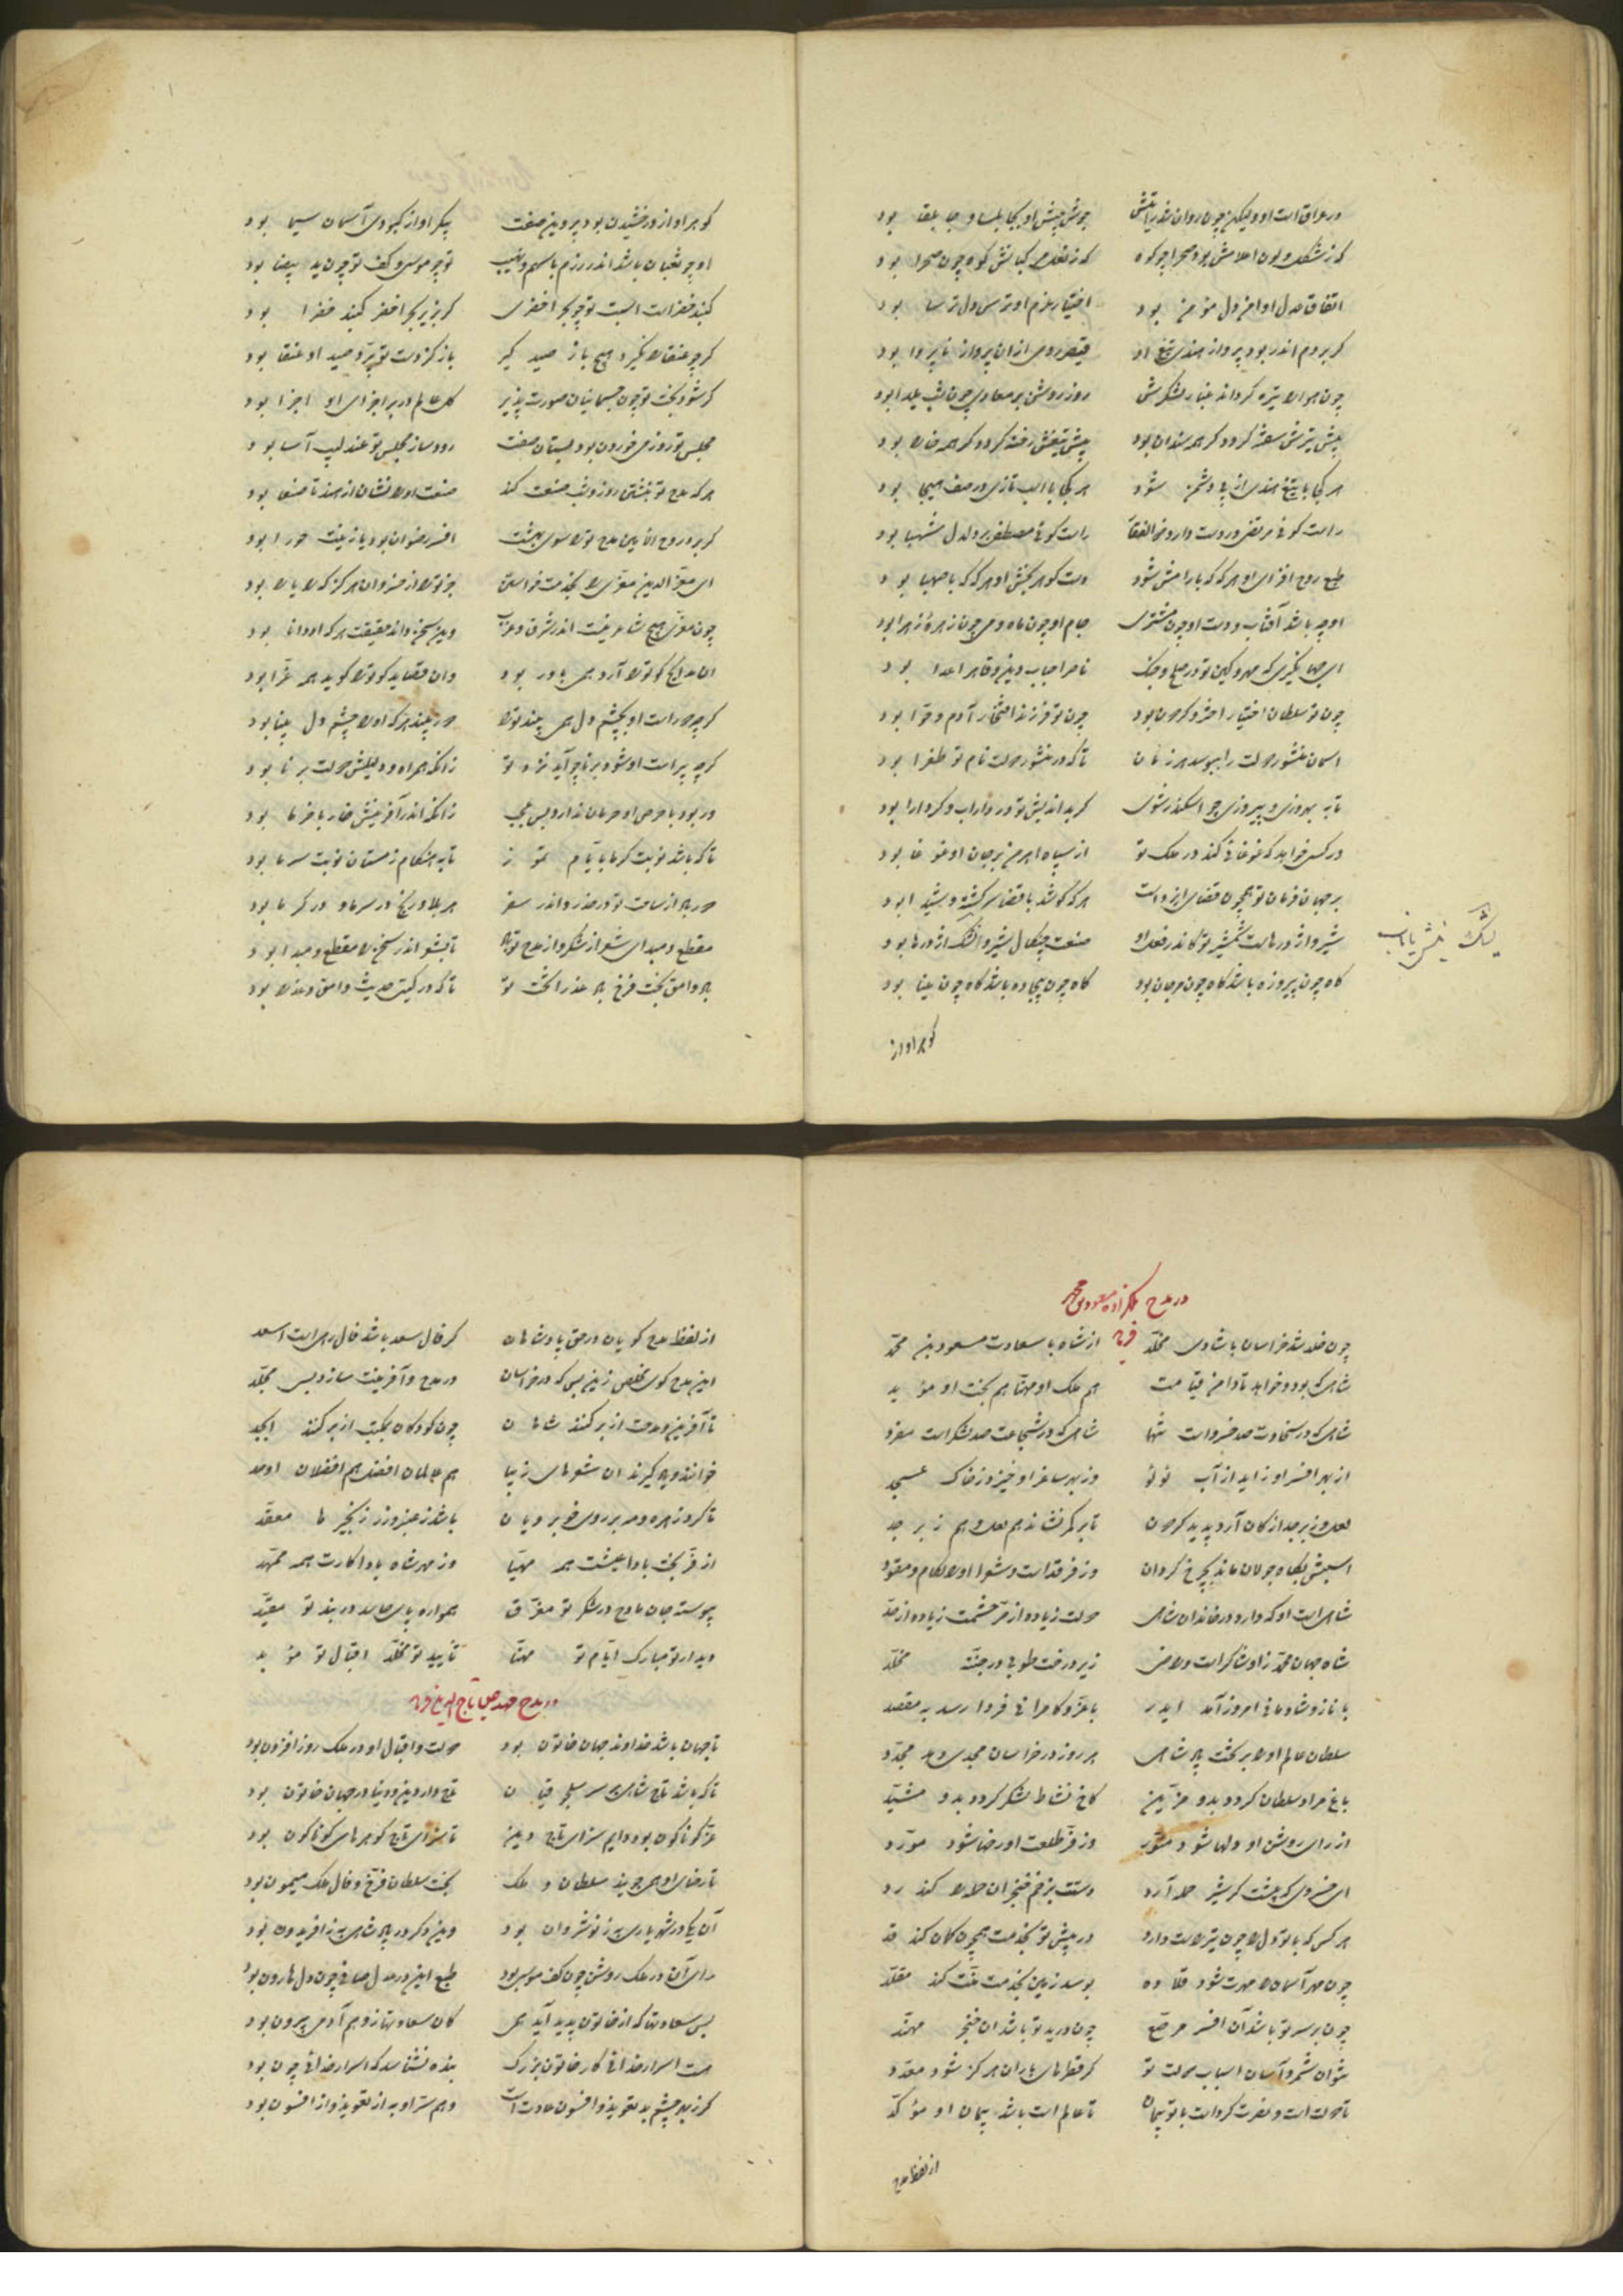 در عراق است او ولیکن چون روان شد رایتش جوش جیش او بجابلسا و جابلقا بود
که ز شکل و لون اعلامش بود صحرا چو کوه که ز نعل مرکبانش کوه چون صحرا بود
اتفاق عدل او امن دل مؤمن بود اختیار عزم او ترس دل ترسا بود
گر بروم اندر بود پرواز هندی تیغ او قیصر رومی از ان پرواز ناپروا بود
چون هوا را تیره گرداند غبار لشکرش روز روشن بر معادی چون شب یلدا بود
پیش تیرش سفته گردد گر همه سندان بود پیش تیغش رخنه گردد گر همه خارا بود
هر کجا با تیغ هندی از پی دشمن شود هر کجا با اسب تازی در صف هیجا بود
راست گوئی مرتضی در دست دارد ذوالفقار راست گوئی مصطفی بر دلدل شهبا بود
طبع روح افزای او هر گه که با رامش شود دست گوهربخش او هر گه که با صهبا بود
او چو باشد آفتاب و دست او چون مشتری جام او چون ماه و می چون زهرهٔ زهرا بود
ای جهانگیری که مهر و کین تو در صلح و جنگ ناصر احباب دین و قاهر اعدا بود
چون تو سلطان اختیار اختر و گردون بود چون تو فرزند افتخار آدم و حوا بود
آسمان منشور دولت را ببوسد هر زمان تا که در منشور دولت نام تو طغرا بود
تا به بهروزی و پیروزی چو اسکندر شوی گر بداندیش تو در داراب و گر دارا بود
ور کسی خواهد که غوغائی کند در ملک تو از سپاه اهرمن بر جان او غوغا بود
بر جهان فرمان تو همچون قضای ایزد است هر که کوشد با قضا سرگشته و شیدا بود
شیر و اژدرهاست شمشیر تو کاندر فعل او صنعت چنگال شیر و اشک اژدرها بود
گاه چون پیروزه باشد گاه چون مرجان بود گاه چون بیجاده باشد گاه چون مینا بود
گوهر او از
گوهر او از درخشیدن بود پروین صفت پیکر او از کبودی آسمان سیما بود
او چو ثعبان باشد اندر رزم با سهم و نهیب تو چو موسی و کف تو چون ید بیضا بود
گنبد خضراست اسبت تو چو بحر اخضری گر بزیر بحر اخضر گنبد خضرا بود
گرچه عنقا را نگیرد هیچ باز صیدگیر باز کز دست تو پرد صید او عنقا بود
گر شود بخت تو چون جسمانیان صورت پذیر کل عالم در بر اجزای او اجزا بود
مجلس تو روز می خوردن بود بستان صفت رودساز مجلس تو عندلیب آسا بود
هر که مدح تو بنقش روز و شب صنعت کند صنعت او را نشان از هند تا صنعا بود
گر برد روح الامین مدح تو را سوی بهشت افسر رضوان بود یا زینت حورا بود
ای معز الدین معزی را بخدمت خواستن جز تو را از خسروان هرگز کرا یارا بود
چون معزی هیچ شاعر نیست اندر شرق و غرب وین سخن داند حقیقت هر که او دانا بود
آن مدایح کو تو را آرد همی باور بود وان قصاید کو تو را گوید همه غرا بود
گرچه دور است او بچشم دل همی بیند تو را دور بیند هر که او را چشم دل بینا بود
گرچه پیر است او شود برنا چو آید نزد تو زانکه همراه و دلیلش دولت برنا بود
ور بود با حرص او حرمان ندارد بس عجب زانکه اندر آفرینش خار با خرما بود
تا که باشد نوبت گرما بایام تموز تا به هنگام زمستان نوبت سرما بود
دور باد از ساحت تو در حضر و اندر سفر هر بلا و رنج در سرما و در گرما بود
مقطع و مبدای شعر از شکر و از مدح تو باد تا بشعر اندر سخن را مقطع و مبدا بود
باد وامق بخت فرخ باد عذرا تخت تو تا که در گیتی حدیث وامق و عذرا بود
در مدح ملکزاده مسعود بن محمد فرماید
چون خلد شد خراسان با شادی مخلد از شاه با سعادت مسعود بن محمد
شاهی که بود و خواهد تا دامن قیامت هم ملک او مهنا هم بخت او مؤید
شاهی که در سخاوت صد خسرو است تنها شاهی که در شجاعت صد لشکر است مفرد
از بهر افسر او زاید از آب لؤلؤ وز بهر ساغر او خیزد ز خاک عسجد
لعل و زبرجد از کان آرد پدید گردون تا بر کمر نشاند هم لعل و هم زبرجد
اسبش بگاه جولان ماند بچرخ گردان وز فرقد است و شعرا او را لگام و مقود
شاهی است او که دارد در خاندان شاهی دولت زیاده از مر حشمت زیاده از حد
شاه جهان محمد زاد و شاکر است و راضی زیر درخت طوبی در جنت مخلد
با ناز و شادمانی امروز آمد ایدر با عز و کامرانی فردا رسد به مقصد
سلطان عالم او را بر تخت پادشاهی هر روز در خراسان مجدی دهد مجدد
باغ مراد سلطان گردد بدو مزین کاخ نشاط لشکر گردد بدو مشید
از رای روشن او دلها شود منور وز فر طلعت او رخها شود مورد
ای خسروی که پیشت گر شیر حمله آرد دستت بزخم خنجر آن حمله را کند رد
هر کس که با تو دل را چون تیر راست دارد در پیش تو بخدمت همچون کمان کند قد
چون مهر آسمان را مهرت شود قلاده بوسد زمین بخدمت منت کند مقلد
چون بر سر تو باشد آن افسر مرصع چون در ید تو باشد آن خنجر مهند
نتوان شمرد آسان اسباب دولت تو گر قطرهای باران هرگز شود معدد
تا دولت است و نصرت کرد است با تو پیمان تا عالم است باشد پیمان او مؤکد
از لفظ مدح
از لفظ مدح گویان در حق پادشاهان گر فال سعد باشد فال رهی است اسعد
این مدح گوی مخلص زین پس که در خراسان در مدح و آفرینت سازد بسی مجلد
تا آفرین و مدحت از بر کنند شاهان چون کودکان بمکتب از بر کنند ابجد
خوانند و یاد گیرند آن شعرهای زیبا هم عالمان افضل هم افضلان اوحد
تا گرد زهره و مه بر روی خوبرویان باشد ز عنبر و زر زنجیرها معقد
از فر بخت بادا عیشت همه مهیا وز مهر شاه بادا کارت همه ممهد
پیوسته جان مادح در شکر تو مغرق همواره پای حاسد در بند تو مقید
دیدار تو مبارک ایام تو مهنا تأیید تو مخلد اقبال تو مؤید
در مدح مهد جهان تاج الدین فرماید
تا جهان باشد خداوند جهان خاتون بود دولت و اقبال او در ملک روز افزون بود
تا که باشد تاج شاهی بر سر سلجوقیان تاج دار دین و دنیا در جهان خاتون بود
عز گوناگون بود دایم سزای تاج دین تا سزای تاج گوهرهای گوناگون بود
تا رضای او همی جویند سلطان و ملک بخت سلطان فرخ و فال ملک میمون بود
آن یکی در شهریاری به ز نوشروان بود وین دگر در پادشاهی به ز افریدون بود
رای آن در ملک روشن چون کف موسی بود طبع این در عدل صافی چون دل هارون بود
بس سعادتها که از خاتون پدید آید همی کان سعادتها ز وهم آدمی بیرون بود
هست اسرار خدائی کار خاتون بزرگ بنده نشناسد که اسرار خدائی چون بود
گر ز بهر چشم بد تعویذ و افسون عادت است وهم ستر او به از تعویذ و از افسون بود